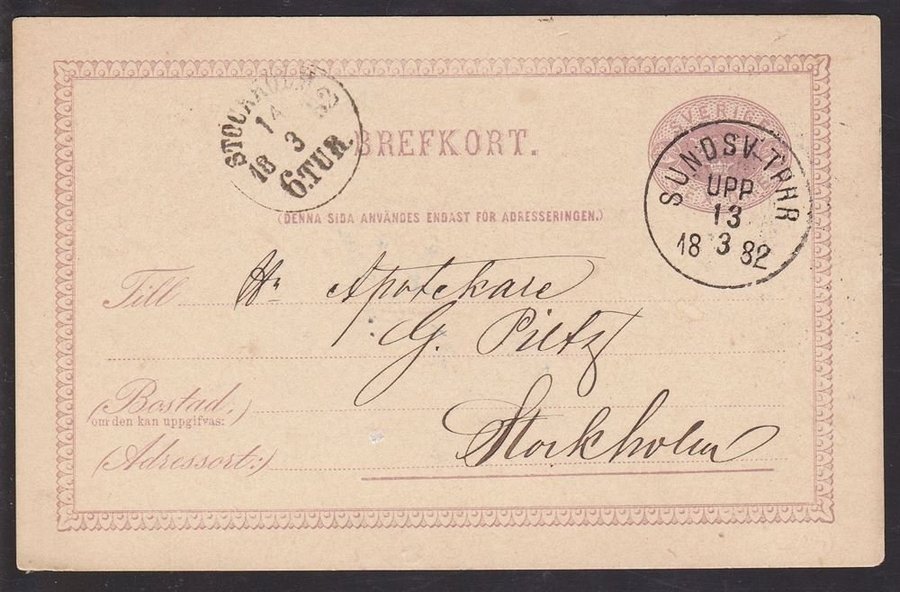 STOCKHOLM
14 82
18 3
6.TUR.
BREFKORT.
SVERIGE
SUNDSV-TPRR
UPP
13
18 3 82
(DENNA SIDA ANVÄNDES ENDAST FÖR ADRESSERINGEN.)
Till Hr Apotekare
G. Pietz
(Bostad,
om den kan uppgifvas:)
(Adressort:) Stockholm